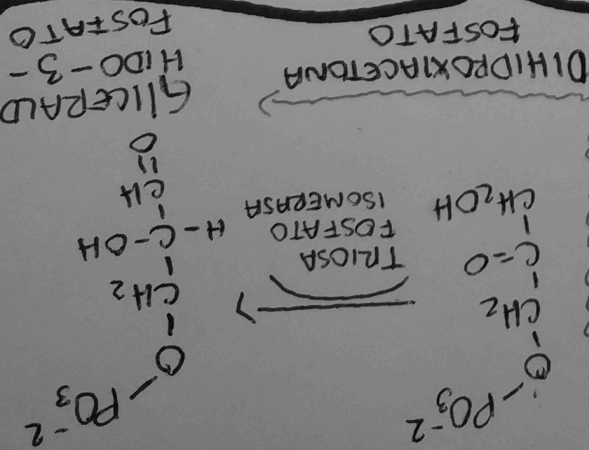 PO₃⁻²
O
CH₂
C=O
CH₂OH
TRIOSA
FOSFATO
ISOMERASA
PO₃⁻²
O
CH₂
H-C-OH
CH
O
DIHIDROXIACETONA
FOSFATO
GLICERALD
HIDO-3-
FOSFATO